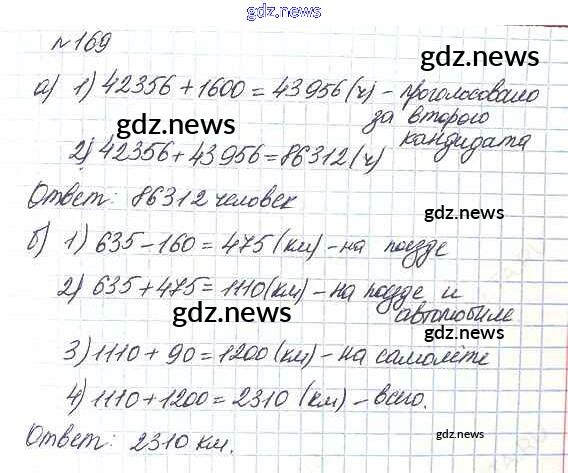 gdz.news
№169
gdz.news
а) 1) 42356 + 1600 = 43956 (ч) - проголосовано
за второго
gdz.news
кандидата
2) 42356 + 43956 = 86312 (ч)
Ответ: 86312 человек
gdz.news
б) 1) 635 - 160 = 475 (км) - на поезде
2) 635 + 475 = 1110 (км) - на поезде и
автомобиле
gdz.news
gdz.news
3) 1110 + 90 = 1200 (км) - на самолёте
4) 1110 + 1200 = 2310 (км) - всего.
Ответ: 2310 км.
gdz.news